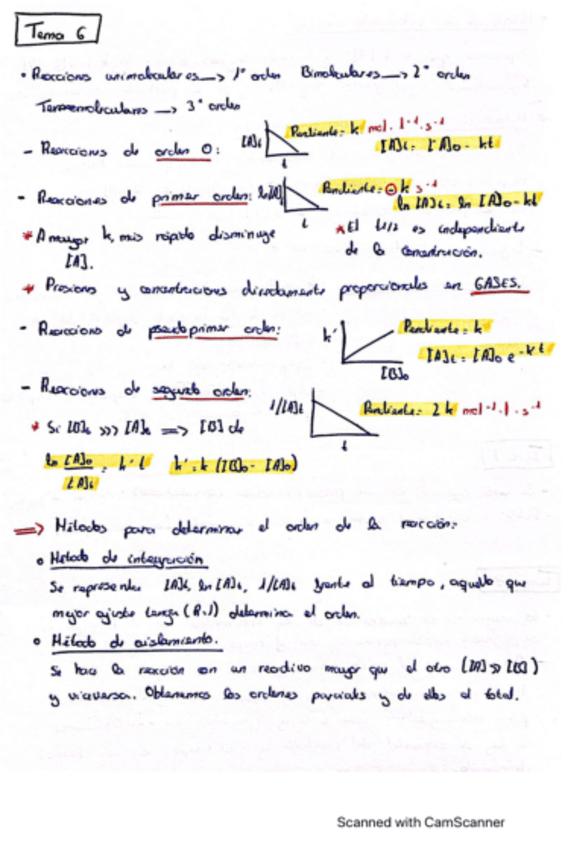 Tema 6
• Reacciones unimoleculares → 1º orden Bimoleculares → 2º orden
Termomoleculares → 3º orden
- Reacciones de orden 0: [A]t t Pendiente = k mol·l⁻¹·s⁻¹
[A]t = [A]0 - kt
- Reacciones de primer orden: ln[A]t t Pendiente = ⊖ k s⁻¹
ln [A]t = ln [A]0 - kt
* A mayor k, más rápido disminuye
[A].
* El t1/2 es independiente
de la concentración.
* Presiones y concentraciones directamente proporcionales en GASES.
- Reacciones de pseudoprimer orden: k' [B]0 Pendiente = k
[A]t = [A]0 e^-kt
- Reacciones de segundo orden: 1/[A]t t Pendiente = 2k mol⁻¹·l·s⁻¹
* Si [B]0 >>> [A]0 => [B] de
ln [A]0 / [A]t = k·t k' = k ([B]0 - [A]0)
=> Métodos para determinar el orden de la reacción:
○ Método de integración
Se representa [A]t, ln [A]t, 1/[A]t frente al tiempo, aquello que
mejor ajuste tenga (R=1) determina el orden.
○ Método de aislamiento.
Se hace la reacción con un reactivo mayor que el otro ([A] >> [B])
y viceversa. Obtenemos los ordenes parciales y de ellos el total.
Scanned with CamScanner